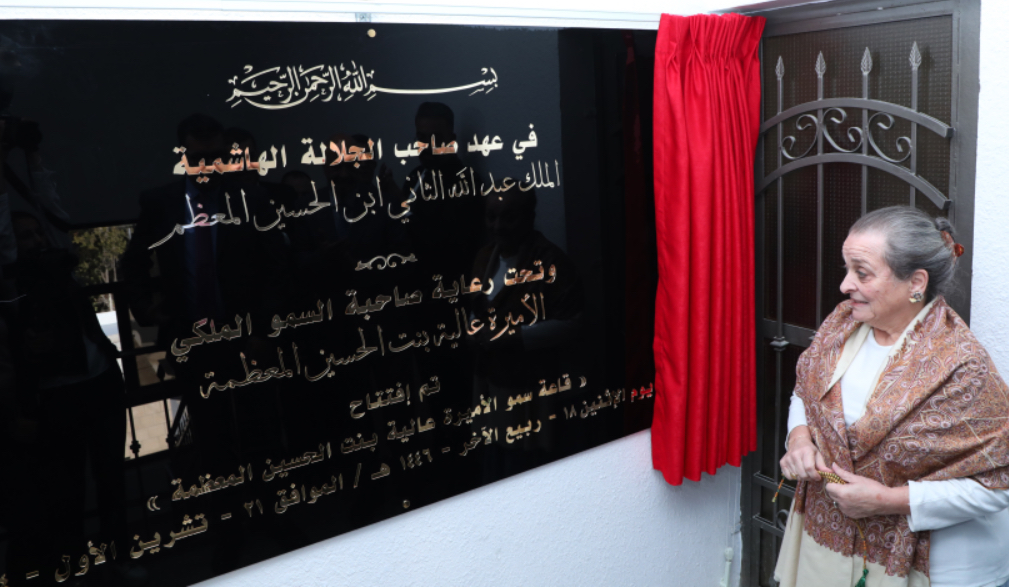 بسم الله الرحمن الرحيم
في عهد صاحب الجلالة الهاشمية
الملك عبد الله الثاني ابن الحسين المعظم
وتحت رعاية صاحبة السمو الملكي
الأميرة عالية بنت الحسين المعظمة
تم إفتتاح
« قاعة سمو الأميرة عالية بنت الحسين المعظمة »
يوم الإثنين ١٨ - ربيع الآخر - ١٤٤٦ هـ / الموافق ٢١ - تشرين الأول -